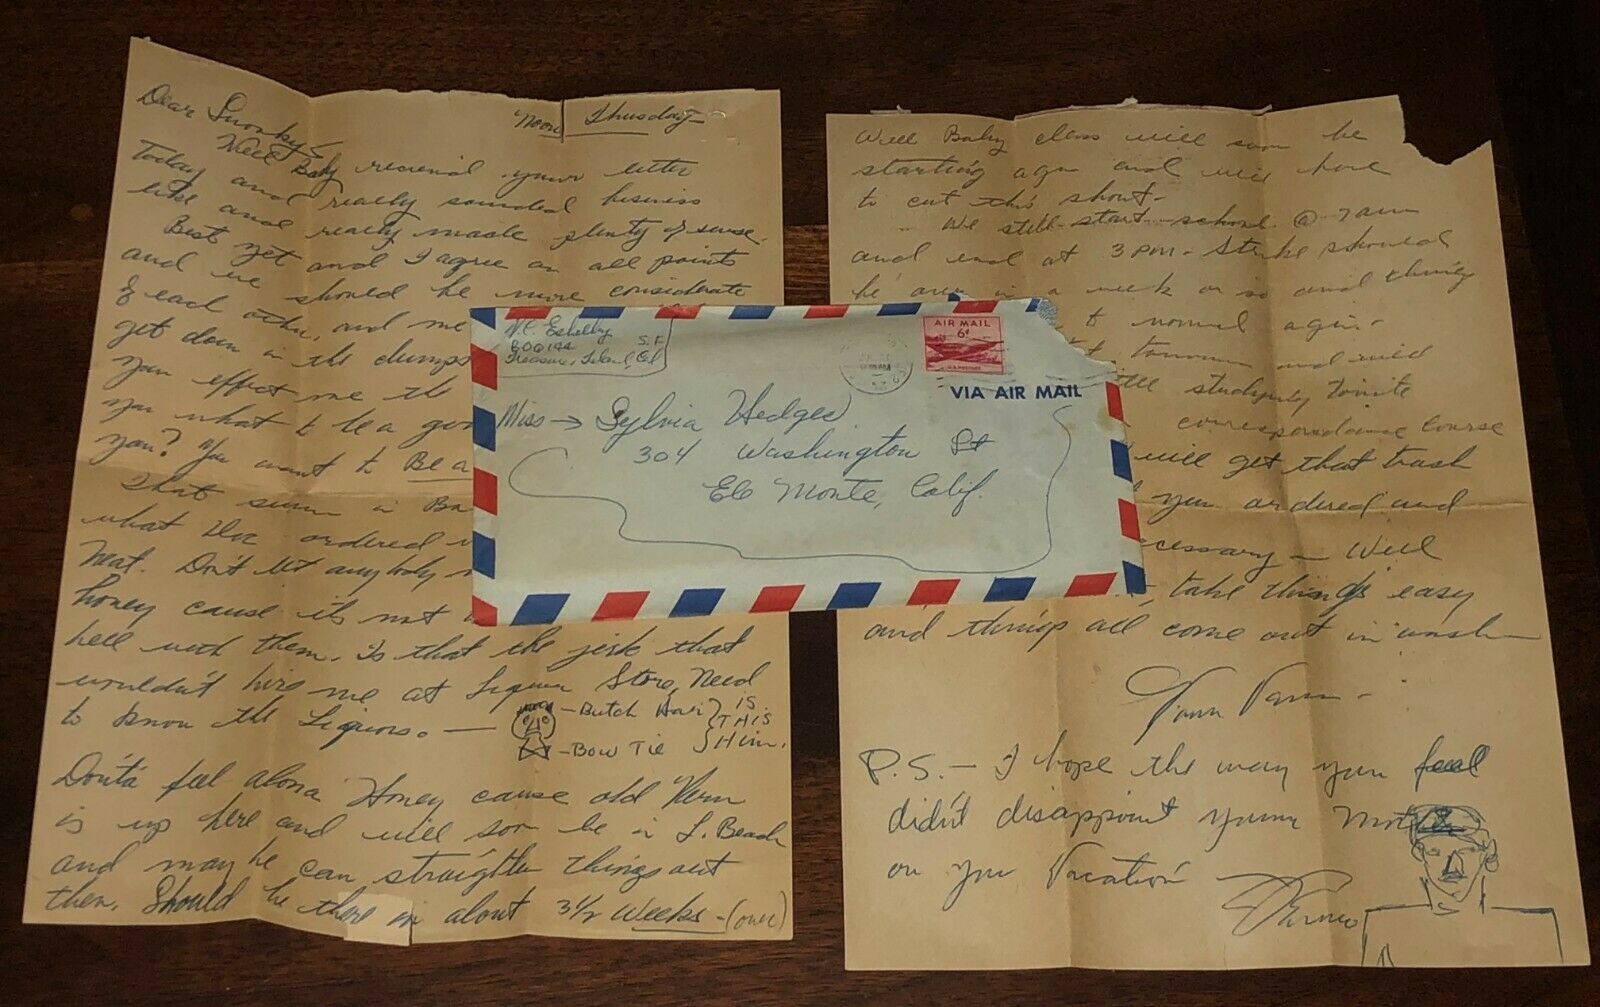 Noon Thusday-
Dear Snonky,
Well Baby received your letter
today and really sounded business
like and really made plenty of sense.
Best yet and I agree on all points
and we should be more considerate
of each other, and me
get down in the dumps
you effect me th
you what to be a goo
you? You want to Be a
That swim in Ba
what Doc ordered
Neat. Don't let anybody
honey cause its not
hell with them. Is that the jerk that
wouldn't hire me at Liquor Store, Need
to know the Liquors. —
- Butch Hair } IS
THIS
- Bow Tie } Him.
Don't feel alone Honey cause old Vern
is up here and will soon be in L. Beach
and maybe can straighten things out
then. Should be there in about 3 1/2 Weeks - (over)
V.E. Eshelby
BOQ 144 S.F.
Treasure, Island, Cal
AIR MAIL
6¢
U.S. POSTAGE
VIA AIR MAIL
Miss → Sylvia Hedges
304 Washington St
El Monte, Calif.
Well Baby class will soon be
starting agin and will have
to cut this short-
We still start school @ 7am
and end at 3 PM - Strike should
be over in a week or so and things
t to normal agin.-
tomorrow and will
ttle studying tonite
correspondance Course
will get that trash
you ordered and
ecessary - Well
take things easy
and things all come out in wash
Your Vern -
P.S. - I hope the way you feel
didn't disappoint your Mother
on you Vacation -